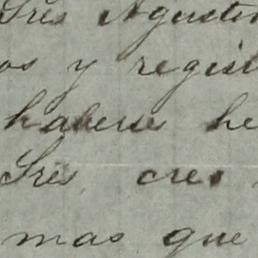 Sres Agustin
os y regis
haberse he
Sres creo
mas que